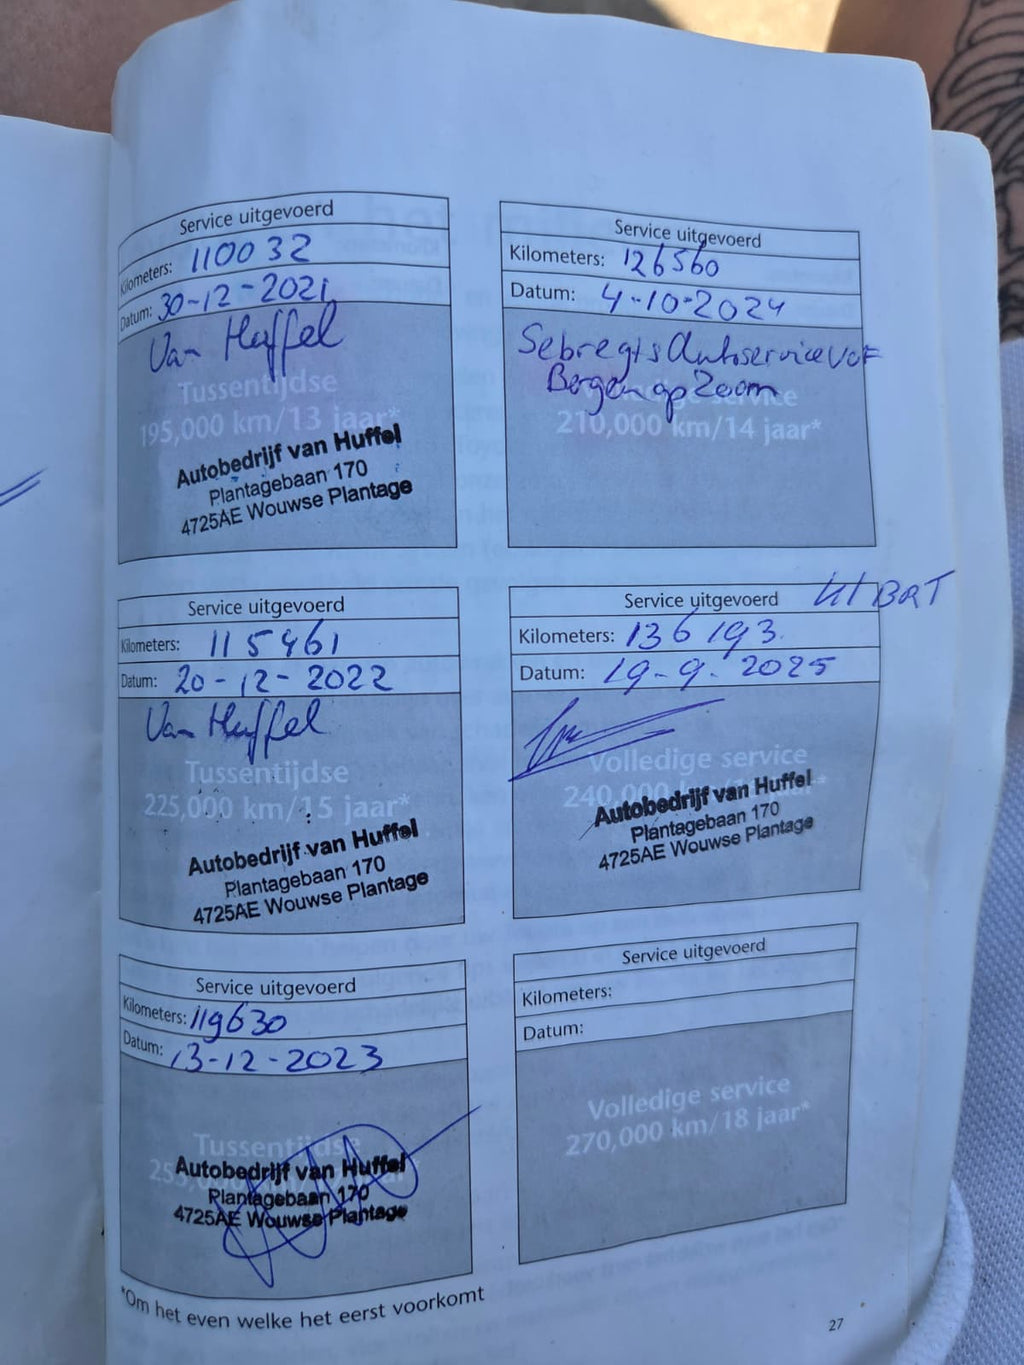 Service uitgevoerd
Kilometers: 110032
Datum: 30-12-2021
Van Huffel
Tussentijdse
195,000 km/13 jaar*
Autobedrijf van Huffel
Plantagebaan 170
4725AE Wouwse Plantage
Service uitgevoerd
Kilometers: 115461
Datum: 20-12-2022
Van Huffel
Tussentijdse
225,000 km/15 jaar*
Autobedrijf van Huffel
Plantagebaan 170
4725AE Wouwse Plantage
Service uitgevoerd
Kilometers: 119630
Datum: 13-12-2023
Tussentijdse
Autobedrijf van Huffel
Plantagebaan 170
4725AE Wouwse Plantage
*Om het even welke het eerst voorkomt
Service uitgevoerd
Kilometers: 126560
Datum: 4-10-2024
Sebregts Autoservice VOF
Bergen op Zoom
service
210,000 km/14 jaar*
Service uitgevoerd
Kilometers: 136193.
Datum: 19-9-2025
Volledige service
240,000
Autobedrijf van Huffel
Plantagebaan 170
4725AE Wouwse Plantage
Service uitgevoerd
Kilometers:
Datum:
Volledige service
270,000 km/18 jaar*
27